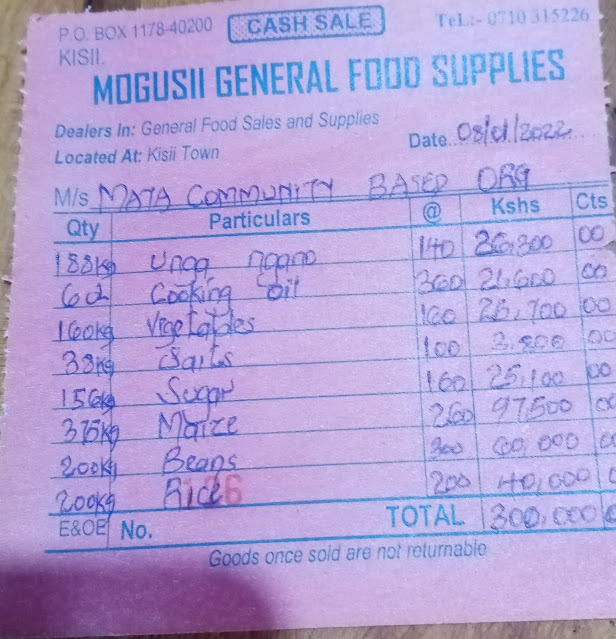 P.O. BOX 1178-40200 CASH SALE TeL:- 0710 315226
KISII.
MOGUSII GENERAL FOOD SUPPLIES
Dealers In: General Food Sales and Supplies
Located At: Kisii Town Date 08/01/2022
M/s MATA COMMUNITY BASED ORG
Qty Particulars @ Kshs Cts
188kg Unga ngano 140 26,300 00
60l Cooking oil 360 21,600 00
160kg Vigetables 160 25,700 00
38kg Salts 100 3,800 00
156kg Sugar 160 25,100 00
375kg Maize 260 97,500 00
200kg Beans 300 60,000 00
200kg Rice 200 40,000
E&OE No. TOTAL 300,000
Goods once sold are not returnable